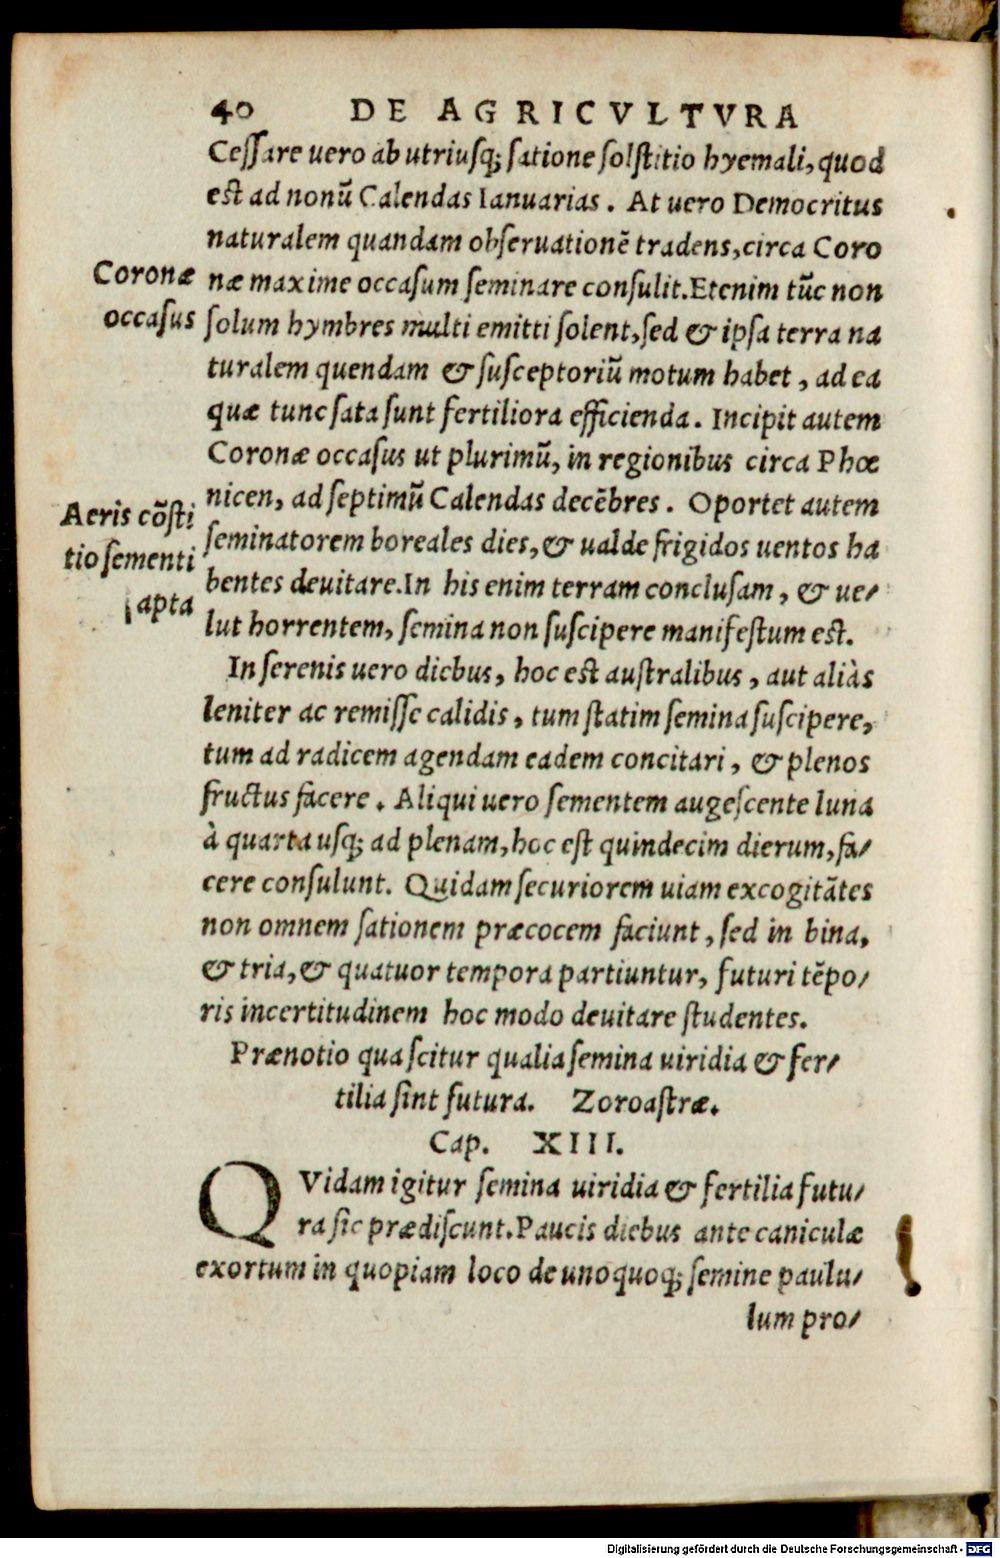 40 DE AGRICVLTVRA
Cessare uero ab utriusq; satione solstitio hyemali, quod
est ad nonũ Calendas Ianuarias. At uero Democritus
naturalem quandam obseruationẽ tradens, circa Coro
Coronæ
næ maxime occasum seminare consulit. Etenim tũc non
occasus
solum hymbres multi emitti solent, sed & ipsa terra na
turalem quendam & susceptoriũ motum habet, ad ea
quæ tunc sata sunt fertiliora efficienda. Incipit autem
Coronæ occasus ut plurimũ, in regionibus circa Phœ
nicen, ad septimũ Calendas decẽbres. Oportet autem
Aeris cõsti
seminatorem boreales dies, & ualde frigidos uentos ha
tio sementi
bentes deuitare. In his enim terram conclusam, & ue/
apta
lut horrentem, semina non suscipere manifestum est.
In serenis uero diebus, hoc est australibus, aut aliàs
leniter ac remisse calidis, tum statim semina suscipere,
tum ad radicem agendam eadem concitari, & plenos
fructus facere. Aliqui uero sementem augescente luna
à quarta usq; ad plenam, hoc est quindecim dierum, fa/
cere consulunt. Quidam securiorem uiam excogitãtes
non omnem sationem præcocem faciunt, sed in bina,
& tria, & quatuor tempora partiuntur, futuri tẽpo/
ris incertitudinem hoc modo deuitare studentes.
Prænotio qua scitur qualia semina uiridia & fer/
tilia sint futura. Zoroastræ.
Cap. XIII.
QVidam igitur semina uiridia & fertilia futu/
ra sic prædiscunt. Paucis diebus ante caniculæ
exortum in quopiam loco de unoquoq; semine paulu/
lum pro/
Digitalisierung gefördert durch die Deutsche Forschungsgemeinschaft - DFG